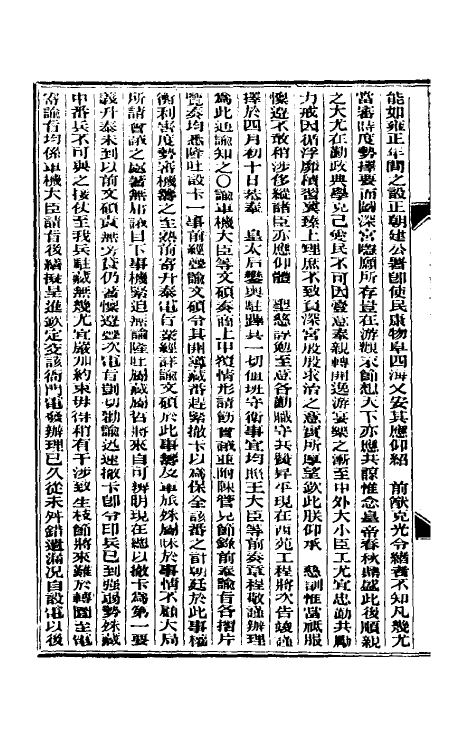 能如雍正年間之設正朝建公署即使民康物阜四海乂安其應仰紹　前猷克光令緒者不知凡幾尤
當審時度勢擇要而圖深宮隱願所存豈在游觀末節想天下亦應共諒惟念皇帝春秋鼎盛此後順親
之大尤在勤政典學克己愛民不可因壹意奉親轉開逸游宴樂之漸至中外大小臣工尤宜忠勤共勵
力戒因循浮靡積習冀臻上理庶不致負深宮殷殷求治之意實所厚望欽此朕仰承　慈訓惟當祗服
懷遵不敢稍涉侈縱諸臣亦應仰體　聖慈諄勉至意各勤職守共贊昇平現在西苑工程將次告竣謹
擇於四月初十日恭奉　皇太后鑾輿駐蹕其一切值班守衛事宜均照王大臣等前奏章程敬謹辦理
為此通諭知之〇諭軍機大臣等文碩奏商上申覆情形請飭會議並附陳管見節錄前奏諭旨各摺片
覽奏均悉隆吐設卡一事前經疊諭文碩令其開導藏番趕緊撤卡以為保全該番之計朝廷於此事權
衡利害度勢審機籌之至熟前寄升泰電旨業經詳諭文碩於此事籌及軍旅殊屬昧於事情不顧大局
所請會議之處著無庸議目下事機緊迫無論隆土屬藏屬哲將來自可辨明現在總以撤卡為第一要
義升泰未到以前文碩責無旁貸仍著懍遵疊次電旨剴切勸諭迅速撤卡即令印兵已到強弱勢殊藏
中番兵不可與之接仗至我兵駐藏無幾尤宜嚴加約束毋得稍有干涉致生枝節將來難於轉圜至電
寄諭旨均係軍機大臣請旨後繕擬呈進欽定交該衙門電發辦理已久從未舛錯遺漏況自設電以後